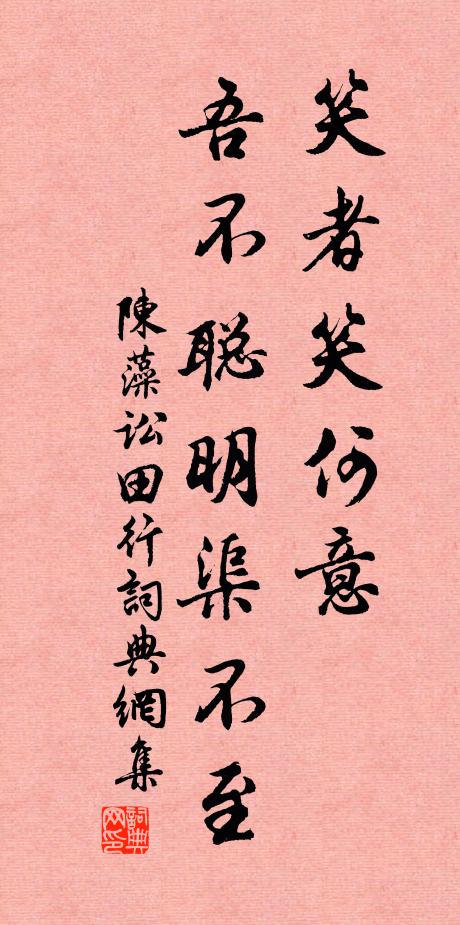 笑者笑何意
吾不聡明渠不至
陳藻訟田行詞典網集
詞典网印